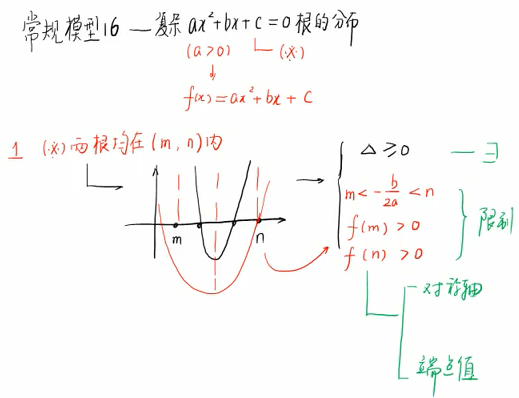 常规模型16 — 复杂 ax²+bx+c=0 根的分布
(a>0) (※)
f(x)=ax²+bx+c
1 (※) 两根均在(m, n)内
m n
Δ≥0 —∃
m<-b/2a<n
f(m)>0
f(n)>0
限制
对称轴
端点值